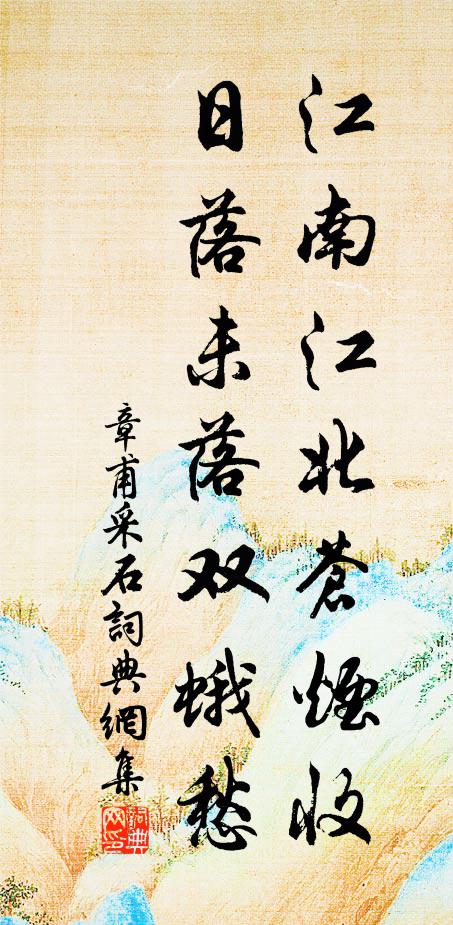 江南江北蒼煙收
日落未落双蛾愁
章甫采石詞典網集
詞典网印